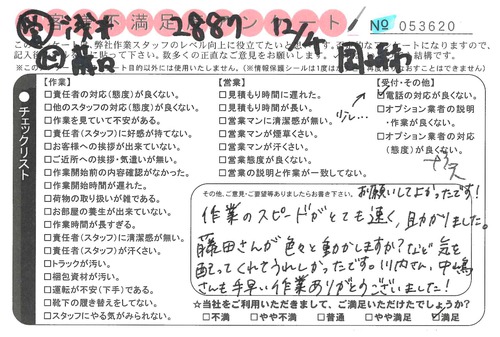 客様不満足アンケート 2887 12/4 № 053620
弊社作業スタッフのレベル向上に役立てたいと
記入後 って下さい。数多くの正直なご意見をお願いします。 結構です。
目的以外には使用いたしません。(※情報保護シールは1度はがすと
チェックリスト
【作業】
□責任者の対応(態度)が良くない。
□他のスタッフの対応(態度)が良くない。
□作業を見ていて不安がある。
□責任者(スタッフ)に好感が持てない。
□お客様への挨拶が出来ていない。
□ご近所への挨拶・気遣いが無い。
□作業開始前の内容確認がなかった。
□作業開始時間が遅れた。
□荷物の取り扱いが雑である。
□お部屋の養生が出来ていない。
□作業時間が長すぎる。
□責任者(スタッフ)に清潔感が無い。
□責任者(スタッフ)が汗くさい。
□トラックが汚い。
□梱包資材が汚い。
□運転が不安(下手)である。
□靴下の履き替えをしてない。
□スタッフにやる気がみられない。
【営業】
□見積もり時間に遅れた。
□見積もり時間が長い。
□営業マンに清潔感が無い。
□営業マンが煙草くさい。
□営業マンが汗くさい。
□営業態度が良くない。
□営業の説明と作業が一致してない。
少し…
【受付・その他】
☑電話の対応が良くない。
□オプション業者の説明
・作業が良くない。
□オプション業者の対応
(態度)が良くない。
その他、ご意見・ご要望等ありましたらお書き下さい。
お願いしてよかったです!
作業のスピードがとても速く、助かりました。
藤田さんが色々と動かしますか?など気を
配ってくれてうれしかったです。川内さん、中嶋
さんも手早い作業ありがとうございました!
☆当社をご利用いただきまして、ご満足いただけたでしょうか?
□不満 □やや不満 □普通 □やや満足 ☑満足